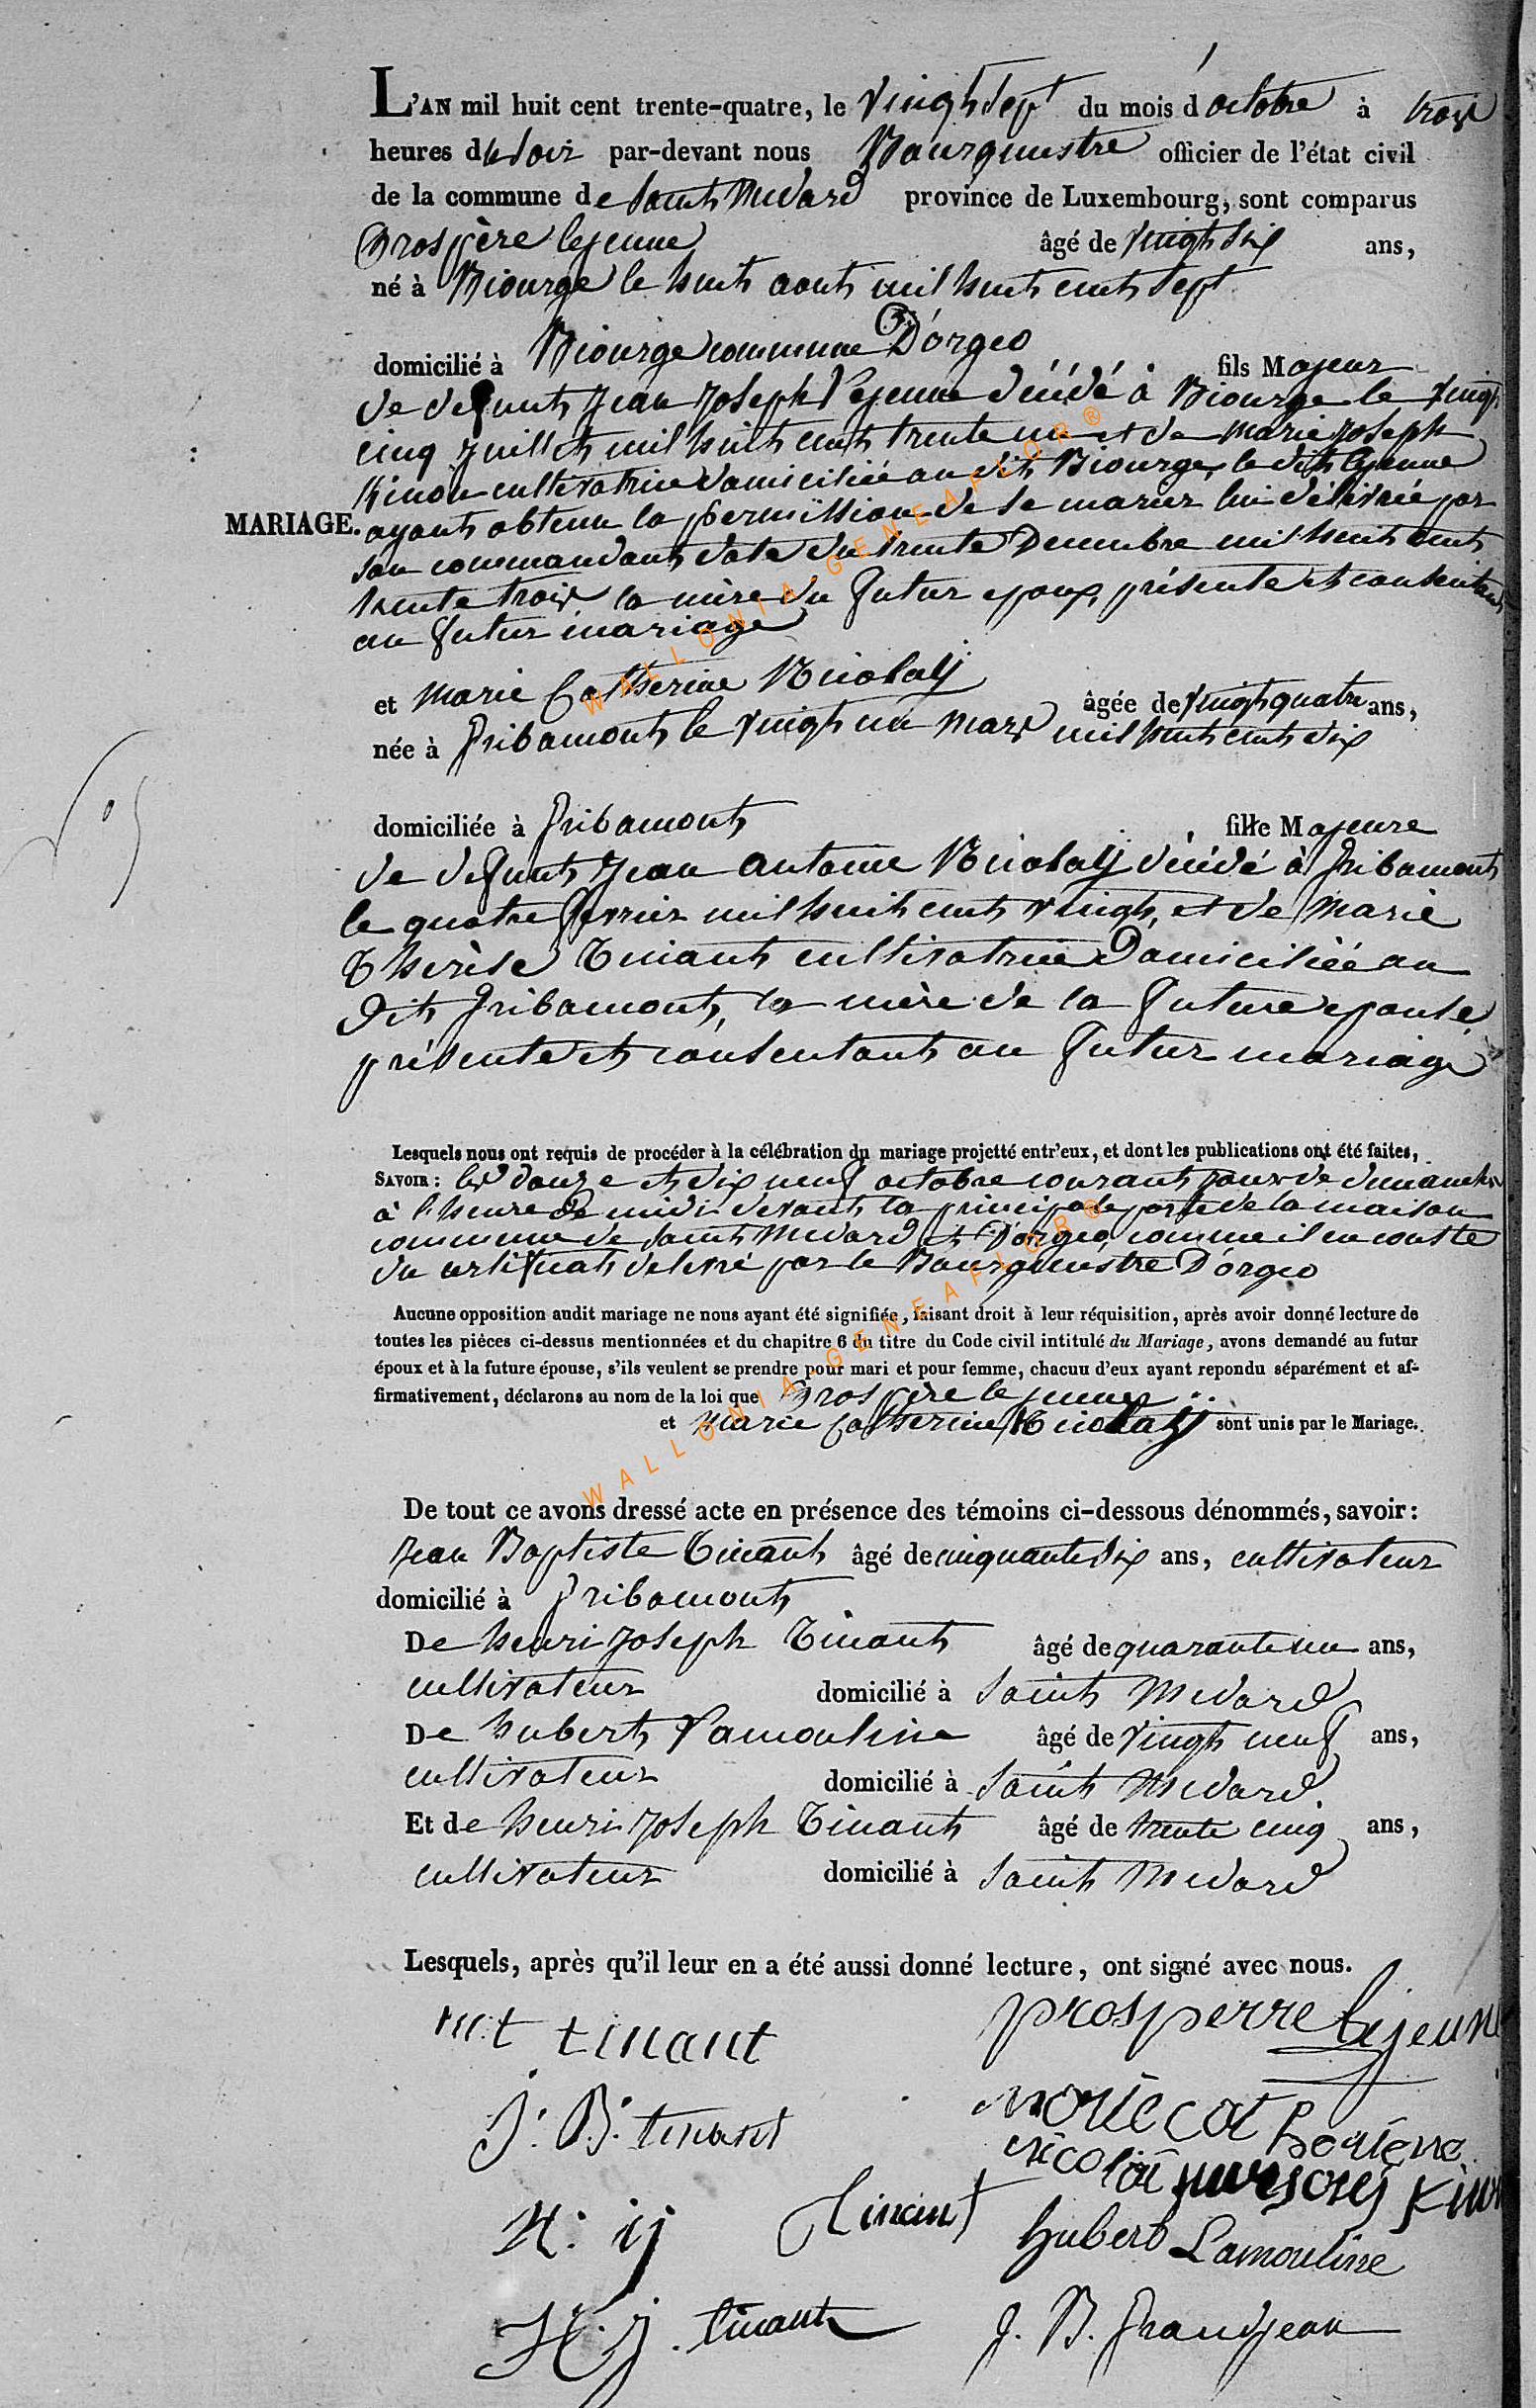 L'AN mil huit cent trente-quatre, le vingt sept du mois d'octobre à trois
heures du soir par-devant nous Bourgmestre officier de l'état civil
de la commune de Saint Medard province de Luxembourg, sont comparus
Prospère lejeune âgé de vingt six ans,
né à Biourge le huit aout mil huit cent sept
domicilié à Biourge commune D'orgeo fils Majeur
de defunt Jean Joseph Lejeune décédé à Biourge le vingt
cinq juillet mil huit cent trente un et de marie joseph
Kinon cultivatrice domiciliée au dit Biourge, le dit lejeune
MARIAGE. ayant obtenu la permission de se marier lui délivrée par
son commandant date du trente Decembre mil huit cent
trente trois, la mère du futur epoux, présente et consentant
au futur mariage
et Marie Catherine Nicolaÿ âgée de vingt quatre ans,
née à gribamont le vingt un mars mil huit cent dix
domiciliée à gribamont fille Majeure
de defunt Jean antoine Nicolaÿ décédé à gribamont
le quatre fevrier mil huit cent vingt, et de Marie
Therèse Tinant cultivatrice Domiciliée au
Dit gribamont, la mère de la future epouse
présente et consentant au futur mariage
Lesquels nous ont requis de procéder à la célébration du mariage projetté entr'eux, et dont les publications ont été faites,
SAVOIR : les douze et dix neuf octobre courant jours de dimanche
à l'heure de midi devant la principale porte de la maison
commune de Saint Medard et D'orgeo, comme il en conste
du certificat delivré par le Bourgmestre D'orgeo
Aucune opposition audit mariage ne nous ayant été signifiée, faisant droit à leur réquisition, après avoir donné lecture de
toutes les pièces ci-dessus mentionnées et du chapitre 6 du titre du Code civil intitulé du Mariage, avons demandé au futur
époux et à la future épouse, s'ils veulent se prendre pour mari et pour femme, chacun d'eux ayant repondu séparément et af-
firmativement, déclarons au nom de la loi que Prospère lejeune
et Marie Catherine Nicolaÿ sont unis par le Mariage.
De tout ce avons dressé acte en présence des témoins ci-dessous dénommés, savoir :
Jean Baptiste Tinant âgé de cinquante six ans, cultivateur
domicilié à gribomont
De henri joseph Tinant âgé de quarante un ans,
cultivateur domicilié à Saint Medard
De hubert Lamouline âgé de vingt neuf ans,
cultivateur domicilié à Saint Medard.
Et de henri joseph Tinant âgé de trente cinq ans,
cultivateur domicilié à Saint Medard
Lesquels, après qu'il leur en a été aussi donné lecture, ont signé avec nous.
m:t tinant prosperre Lejeune
J. B. tinant marie cat herienne
nicolai
H. ij Tinant hubert Lamouline
H. j. tinant J. B. Grandjean
WALLONIA-GENEAFLOR®
WALLONIA-GENEAFLOR®